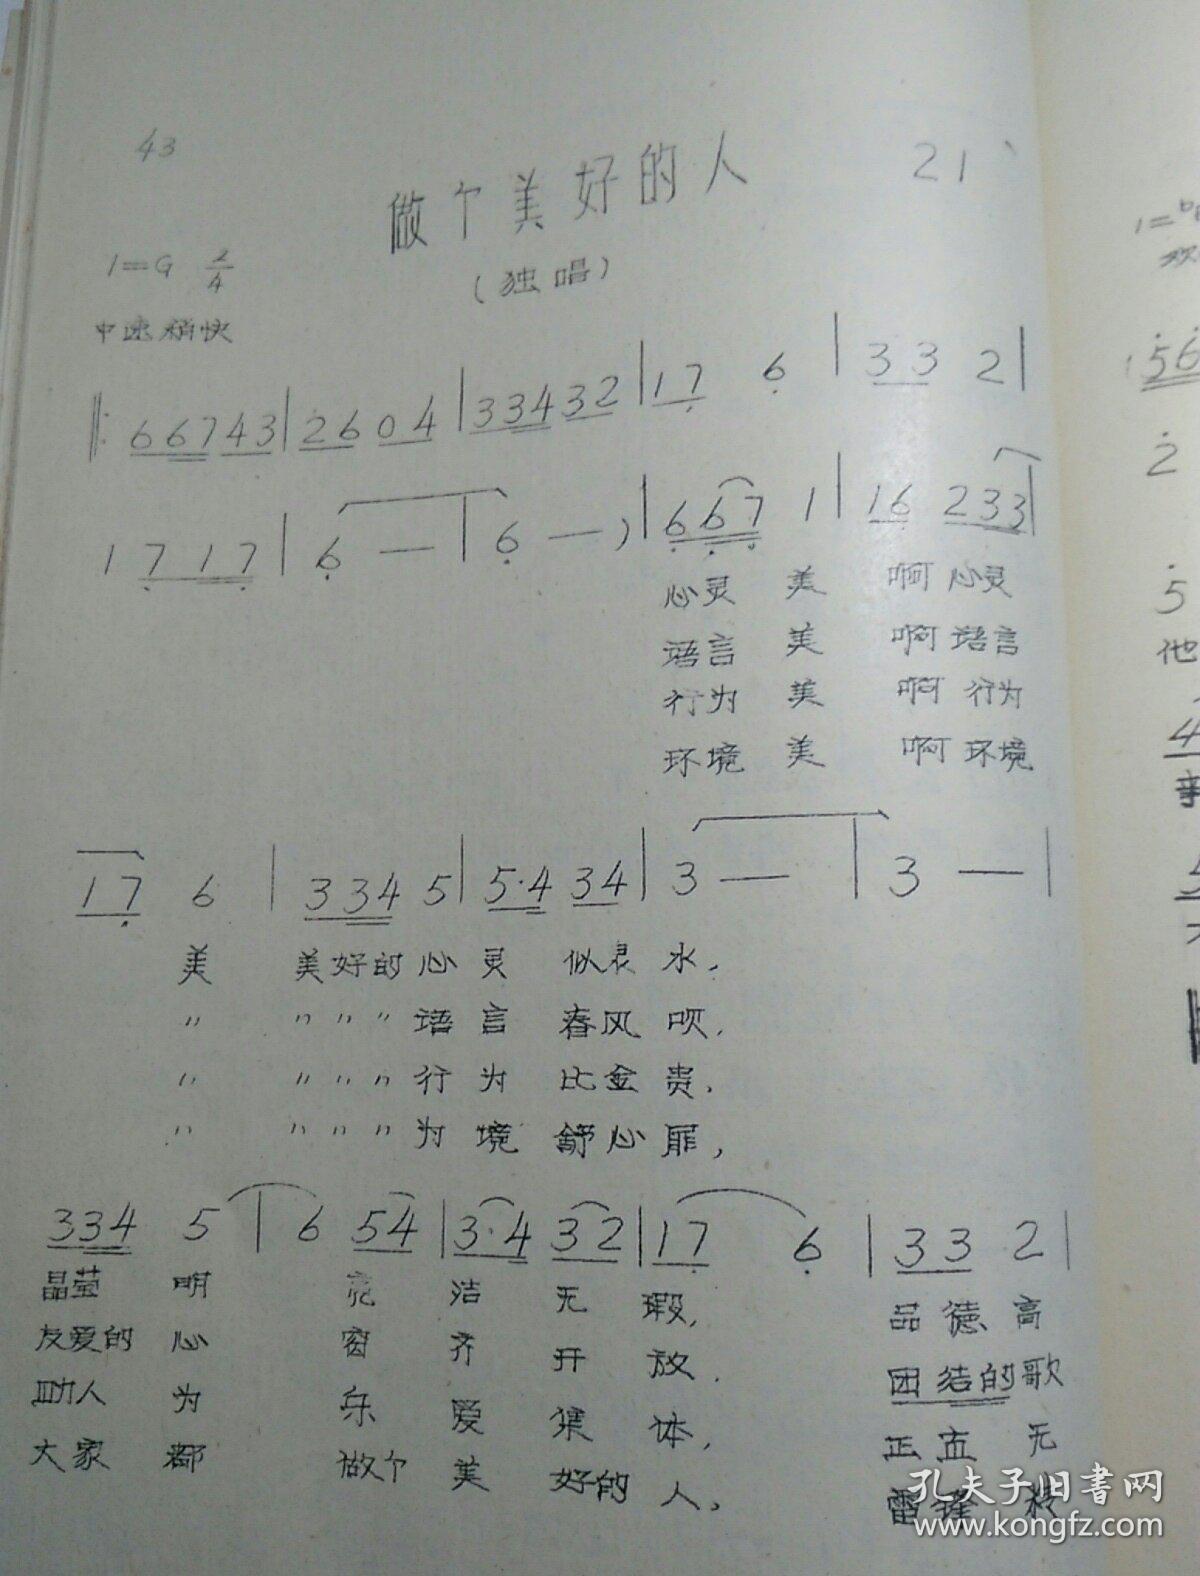 43
21
做个美好的人
(独唱)
1=G 2/4
中速稍快
‖: 6 6 7 4 3 | 2 6 0 4 | 3 3 4 3 2 | 1 7 6 | 3 3 2 |
1 7 1 7 | 6 — | 6 — ) | 6 6 7 1 | 1 6 2 3 3 |
心灵 美 啊 心灵
语言 美 啊 语言
行为 美 啊 行为
环境 美 啊 环境
1 7 6 | 3 3 4 5 | 5·4 3 4 | 3 — | 3 — |
美 美好的心灵 似 水,
〃 〃 〃 〃 语言 春风 吹,
〃 〃 〃 〃 行为 比金 贵,
〃 〃 〃 〃 为境 舒心 扉,
3 3 4 5 | 6 5 4 | 3·4 3 2 | 1 7 6 | 3 3 2 |
晶莹 明 亮 洁 无 瑕, 品德 高
友爱的 心 窗 齐 开 放, 团结的 歌
助人 为 乐 爱 集 体, 正直 无
大家 都 做个 美 好的 人, 雷锋
1=
5 6
2
5
他
4
孔夫子旧书网
www.kongfz.com